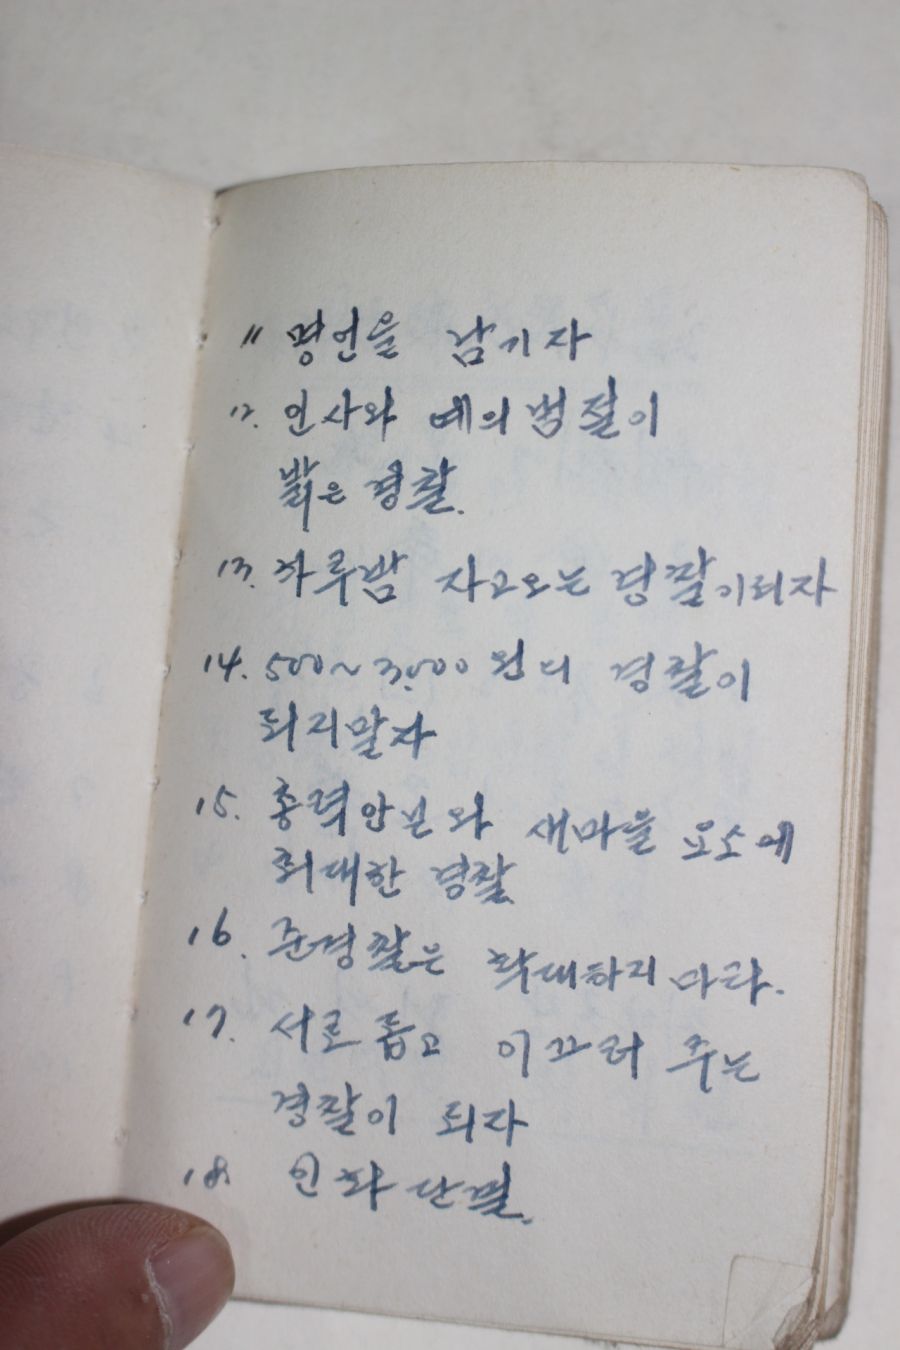 11 명언을 남기자
12. 인사와 예의범절이
밝은 경찰.
13. 하루밤 자고오는 경찰이되자
14. 500~3,000원의 경찰이
되지말자
15. 총력안보와 새마을 요소에
최대한 경찰
16. 준경찰은 학대하지 마라.
17. 서로 돕고 이끄러 주는
경찰이 되자
18. 인화단결.